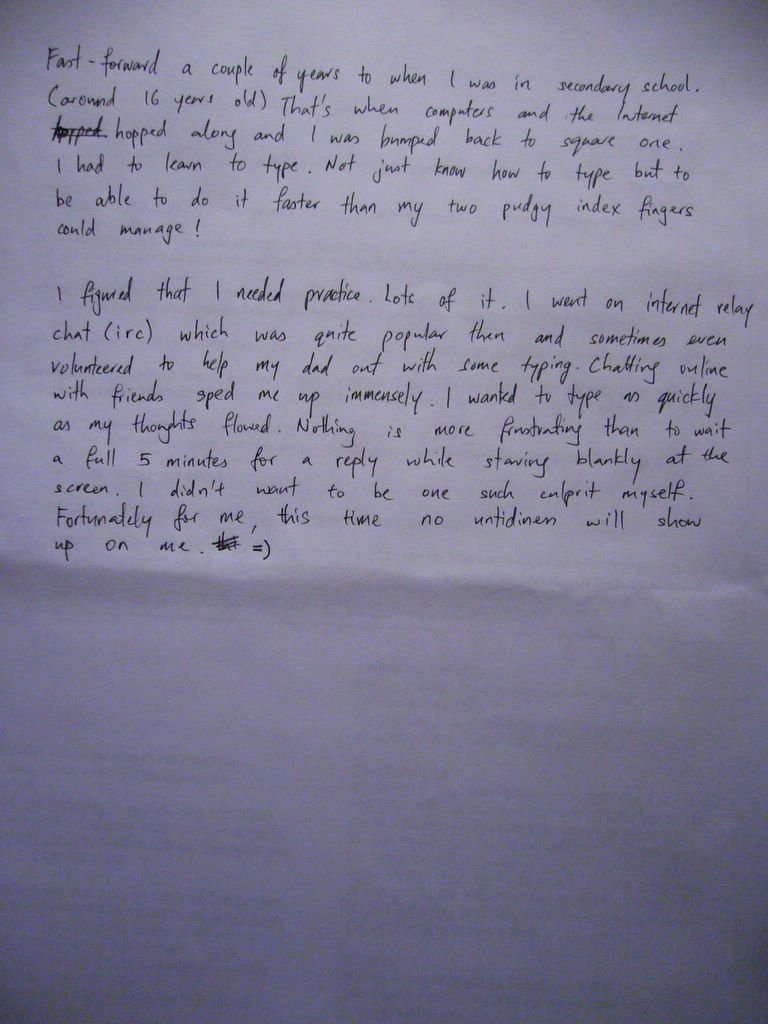 Fast-forward a couple of years to when I was in secondary school.
(around 16 years old) That's when computers and the Internet
hopped along and I was bumped back to square one.
I had to learn to type. Not just know how to type but to
be able to do it faster than my two pudgy index fingers
could manage!
I figured that I needed practice. Lots of it. I went on internet relay
chat (irc) which was quite popular then and sometimes even
volunteered to help my dad out with some typing. Chatting online
with friends sped me up immensely. I wanted to type as quickly
as my thoughts flowed. Nothing is more frustrating than to wait
a full 5 minutes for a reply while staring blankly at the
screen. I didn't want to be one such culprit myself.
Fortunately for me, this time no untidiness will show
up on me. =)